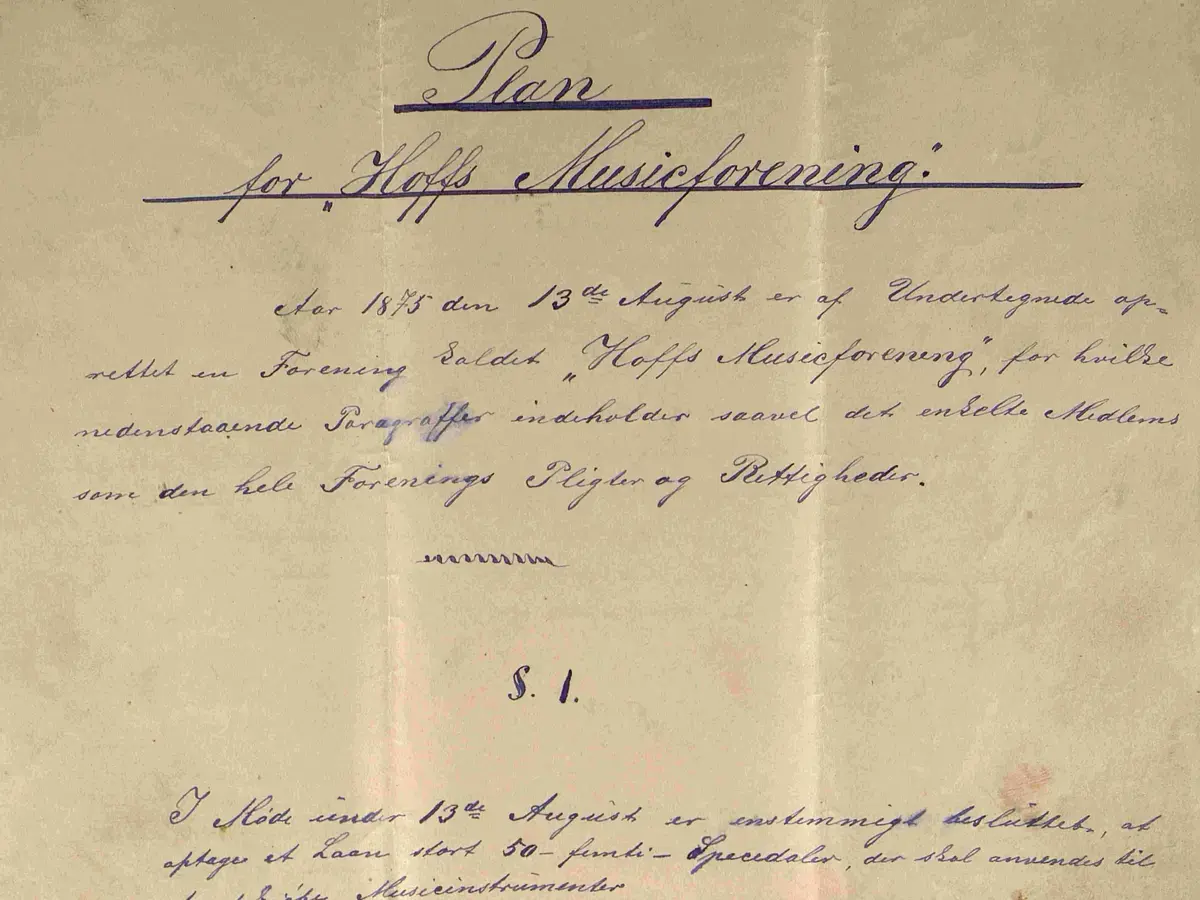 Plan
for „Hoffs Musicforening".
Aar 1875 den 13de August er af Undertegnede op-
rettet en Forening kaldet „Hoffs Musicforening", for hvilke
nedenstaaende Paragraffer indeholder saavel det enkelte Medlems
som den hele Forenings Pligter og Rettigheder.
§. 1.
I Møde under 13de August er enstemmigt besluttet, at
optage et Laan stort 50 - femti - Specedaler, der skal anvendes til
Musicinstrumenter